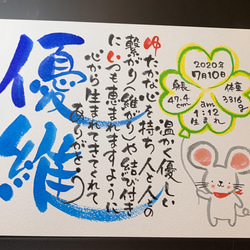 優維
温かく優しい
ゆたかな心を持ち人と人との
繋がり（維がり）や結び付き
に心も恵まれますように
心から生まれてきてくれて
ありがとう
2020年
7月10日
身長
47.4
cm
体重
3316
g
am
1:12
生まれ